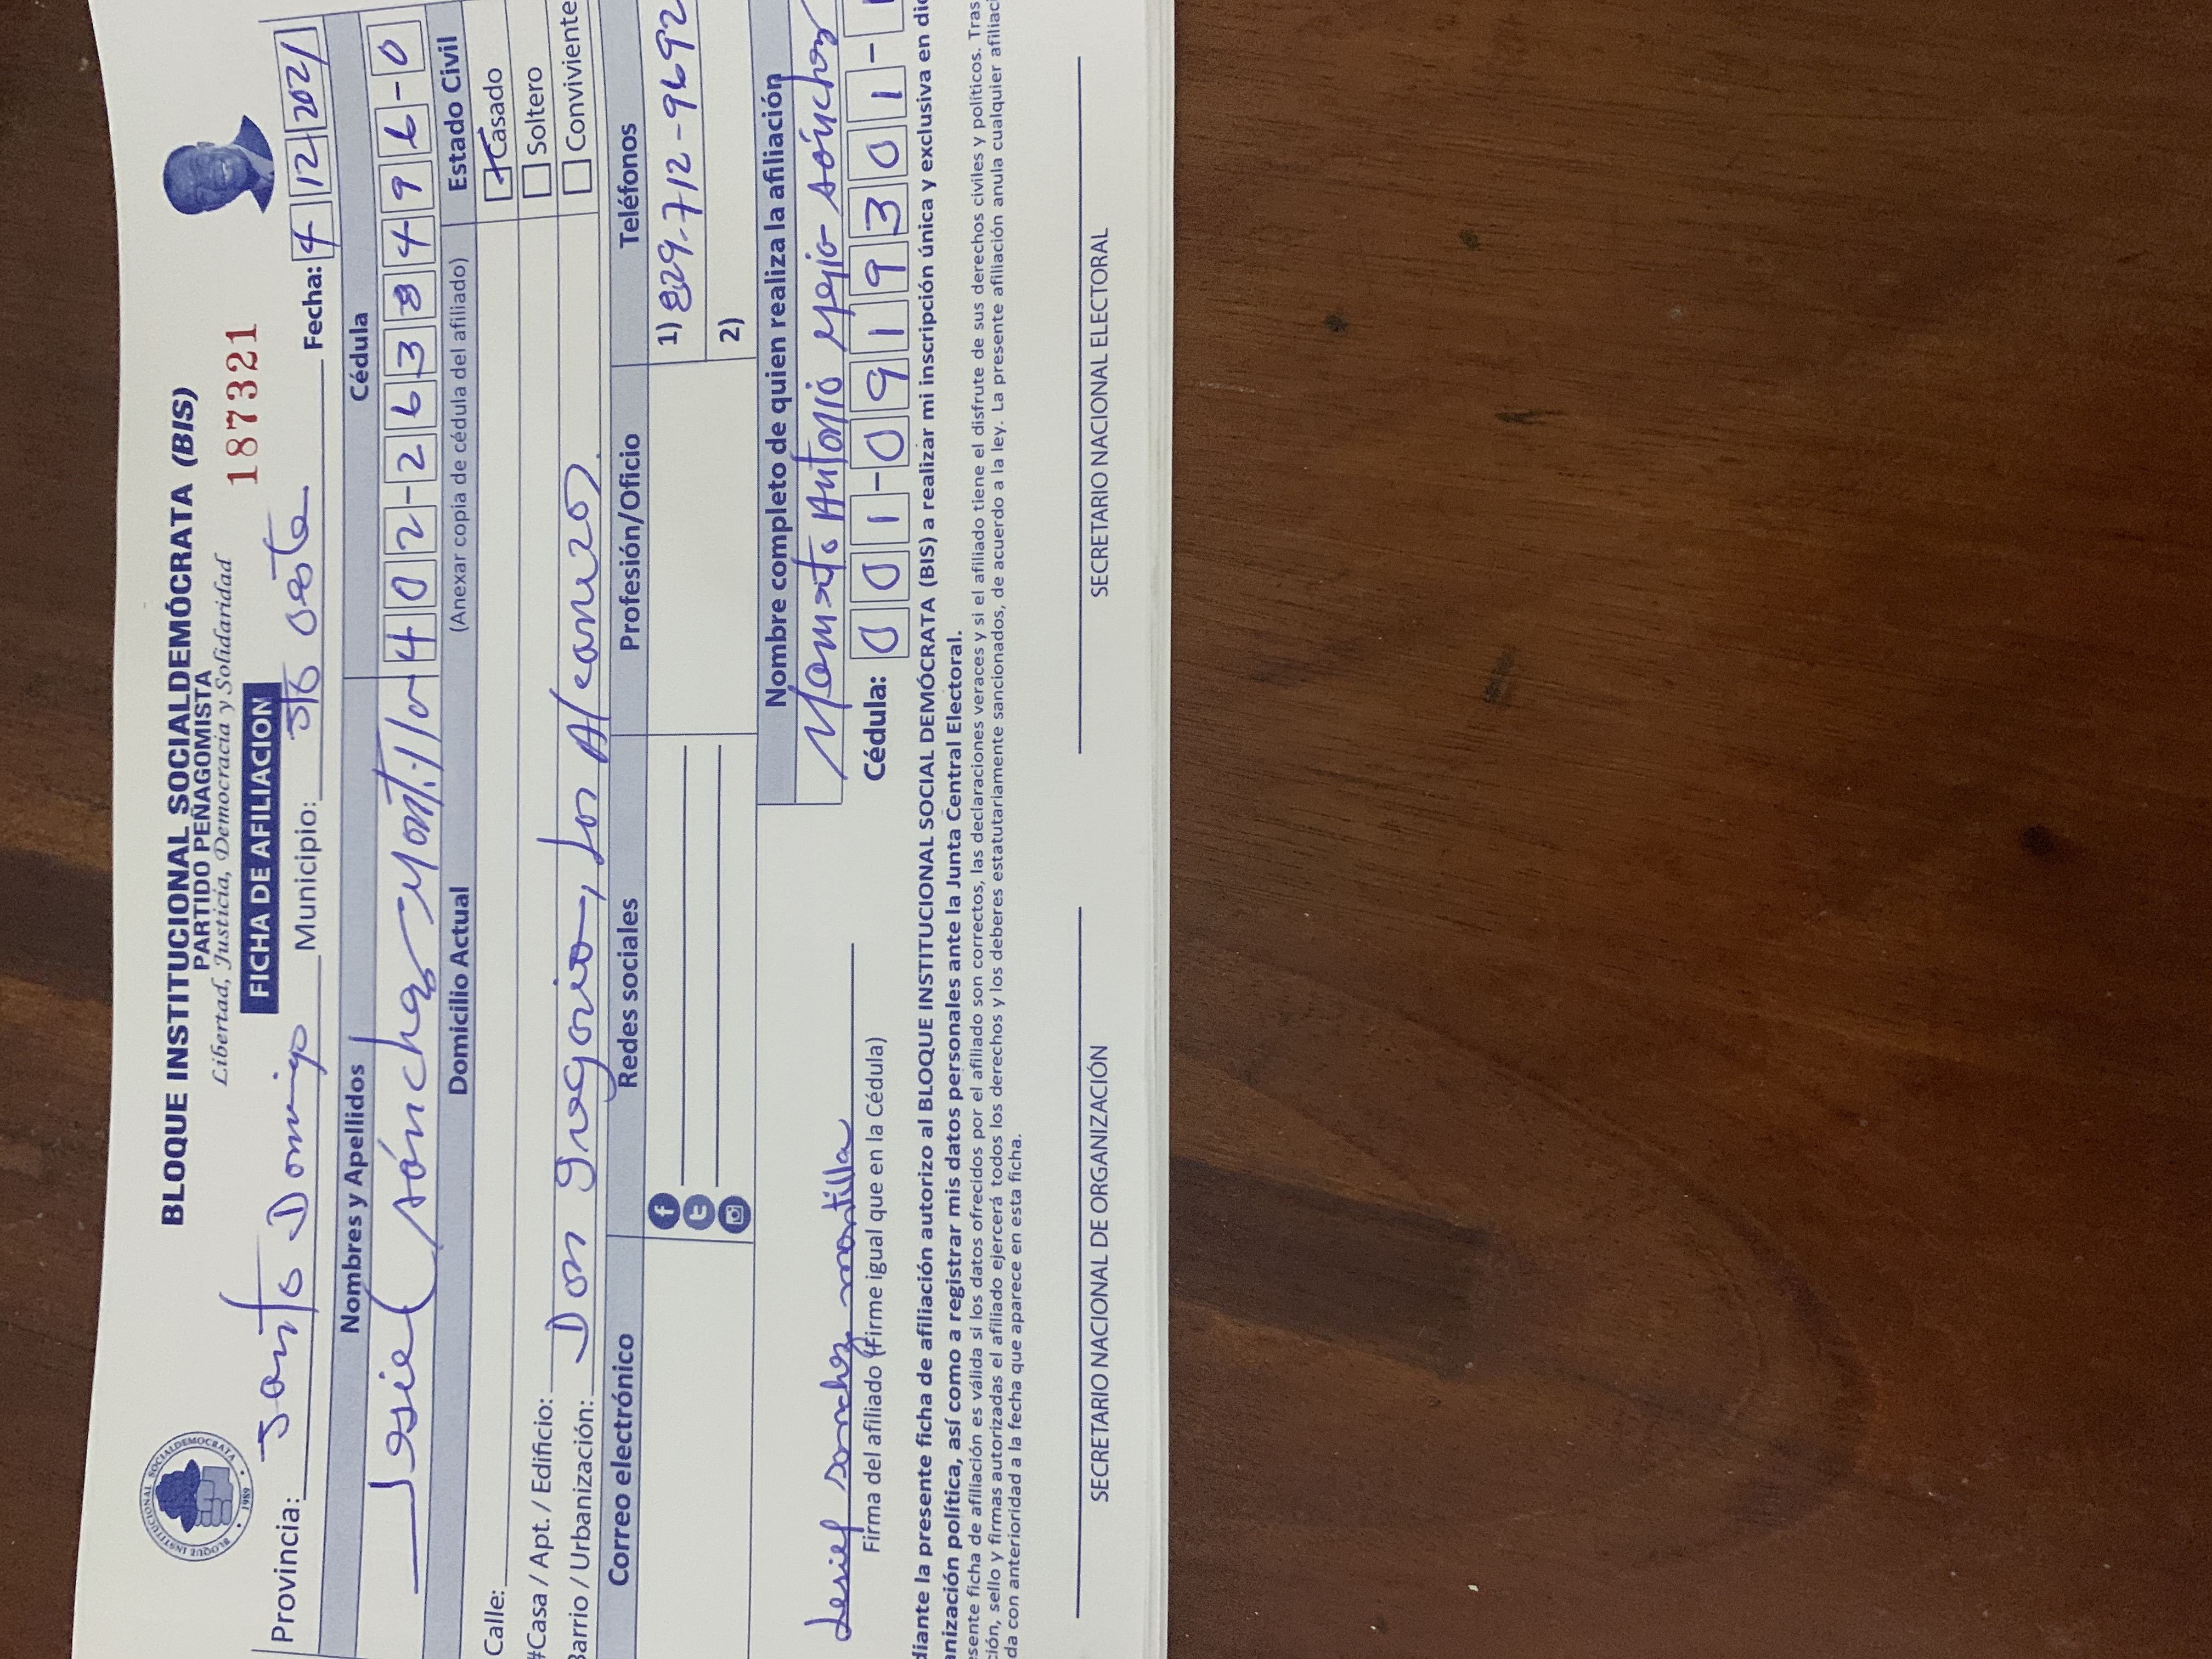 BLOQUE INSTITUCIONAL SOCIALDEMÓCRATA (BIS)
PARTIDO PEÑAGOMISTA
Libertad, Justicia, Democracia y Solidaridad
BLOQUE INSTITUCIONAL SOCIALDEMOCRATA • 1989 •
FICHA DE AFILIACION 187321
Provincia: Santo Domingo Municipio: sto oeste Fecha: 4 12 2021
Nombres y Apellidos Cédula
Sánchez Montilla 402-2633496-0
Domicilio Actual (Anexar copia de cédula del afiliado) Estado Civil
Calle: Casado
#Casa / Apt. / Edificio: Soltero
Barrio / Urbanización: Don gregorio, Los Alcarrizos. Conviviente
Correo electrónico Redes sociales Profesión/Oficio Teléfonos
1) 829-712-9692
2)
Nombre completo de quien realiza la afiliación
Antonio Mejia Sánchez
sanchez montilla
Cédula: 001-0919301-
Firma del afiliado (Firme igual que en la Cédula)
diante la presente ficha de afiliación autorizo al BLOQUE INSTITUCIONAL SOCIAL DEMÓCRATA (BIS) a realizar mi inscripción única y exclusiva en dic
anización política, así como a registrar mis datos personales ante la Junta Central Electoral.
esente ficha de afiliación es válida si los datos ofrecidos por el afiliado son correctos, las declaraciones veraces y si el afiliado tiene el disfrute de sus derechos civiles y políticos. Tras
ción, sello y firmas autorizadas el afiliado ejercerá todos los derechos y los deberes estatutariamente sancionados, de acuerdo a la ley. La presente afiliación anula cualquier afiliac
da con anterioridad a la fecha que aparece en esta ficha.
SECRETARIO NACIONAL DE ORGANIZACIÓN SECRETARIO NACIONAL ELECTORAL